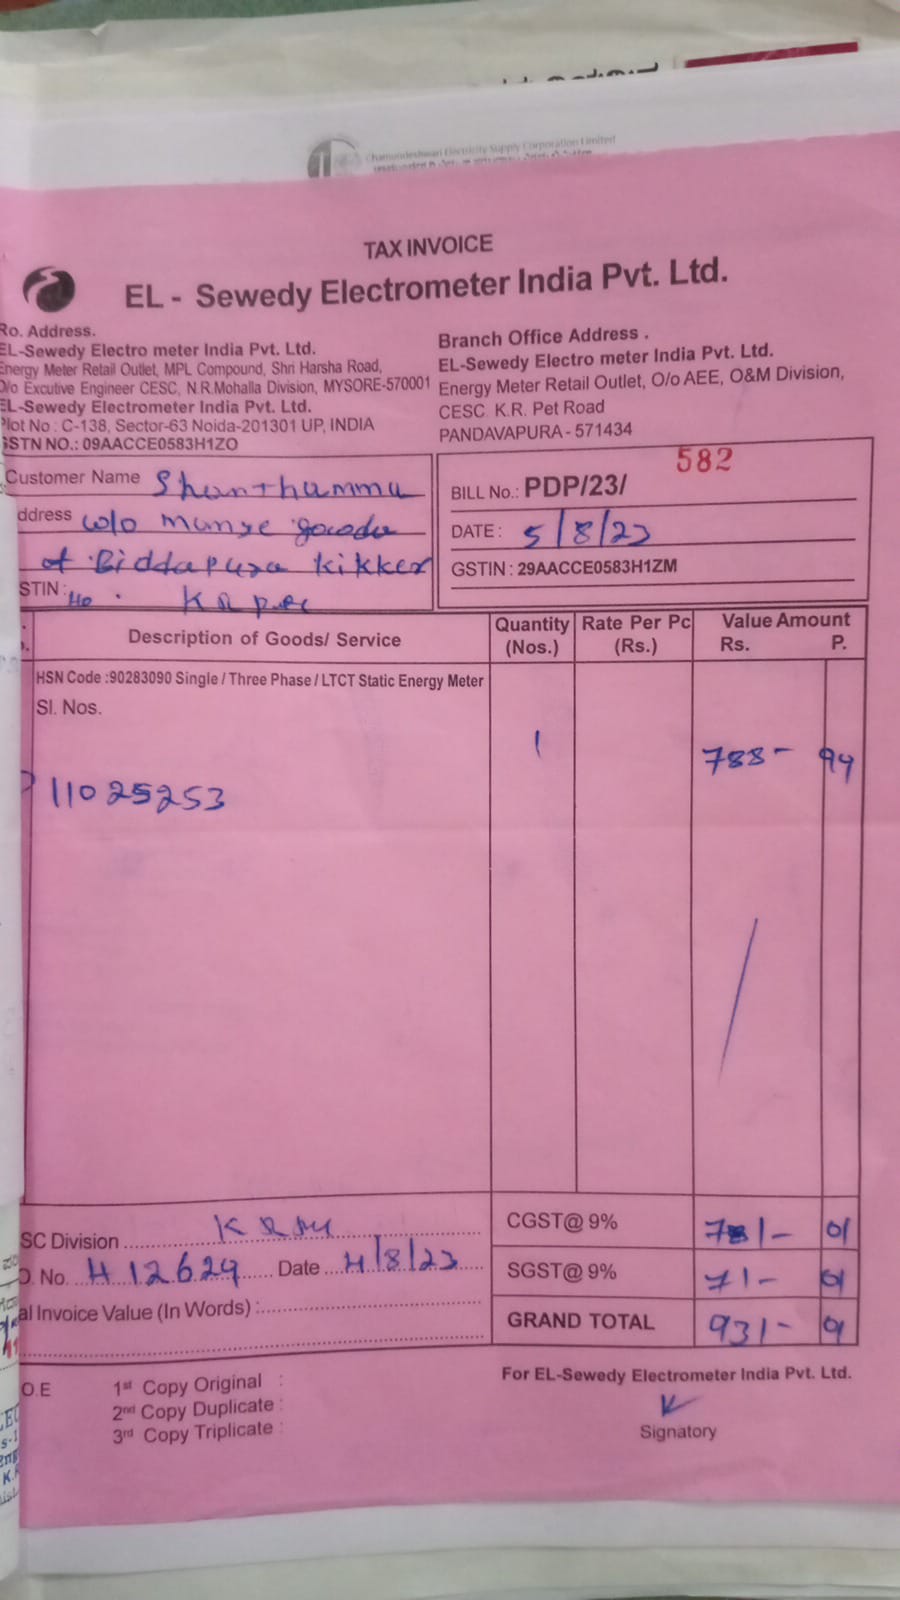 Chamundeshwari Electricity Supply Corporation Limited
TAX INVOICE
EL - Sewedy Electrometer India Pvt. Ltd.
Ro. Address.
EL-Sewedy Electro meter India Pvt. Ltd.
Energy Meter Retail Outlet, MPL Compound, Shri Harsha Road,
O/o Excutive Engineer CESC, N.R.Mohalla Division, MYSORE-570001
EL-Sewedy Electrometer India Pvt. Ltd.
Plot No : C-138, Sector-63 Noida-201301 UP, INDIA
GSTN NO.: 09AACCE0583H1ZO
Branch Office Address .
EL-Sewedy Electro meter India Pvt. Ltd.
Energy Meter Retail Outlet, O/o AEE, O&M Division,
CESC K.R. Pet Road
PANDAVAPURA - 571434
Customer Name Shanthamma
ddress w/o
of Biddapura Kikker
STIN : Ho . K R pet
BILL No.: PDP/23/ 582
DATE : 5/8/23
GSTIN : 29AACCE0583H1ZM
Description of Goods/ Service Quantity (Nos.) Rate Per Pc (Rs.) Value Amount Rs. P.
HSN Code :90283090 Single / Three Phase / LTCT Static Energy Meter
Sl. Nos.
1 788- 94
11025253
SC Division K R
O. No. H 12629 Date 4/8/23
al Invoice Value (In Words) :
CGST@ 9% 71/- 01
SGST@ 9% 71- 01
GRAND TOTAL 931- 9
O.E
1st Copy Original :
2nd Copy Duplicate :
3rd Copy Triplicate :
For EL-Sewedy Electrometer India Pvt. Ltd.
Signatory